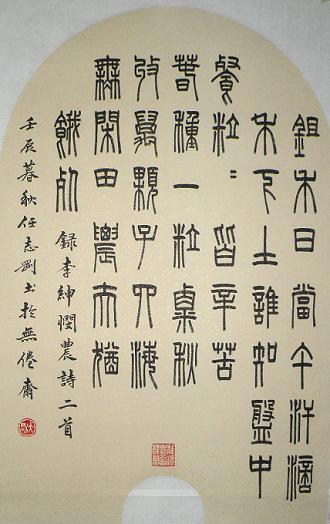 鉏禾日當午汗滴
禾下土誰知盤中
餐粒〻皆辛苦
春種一粒粟秋
收萬顆子四海
無閑田農夫猶
餓死
錄李紳憫農詩二首
壬辰暮秋任志剛書於無倦齋